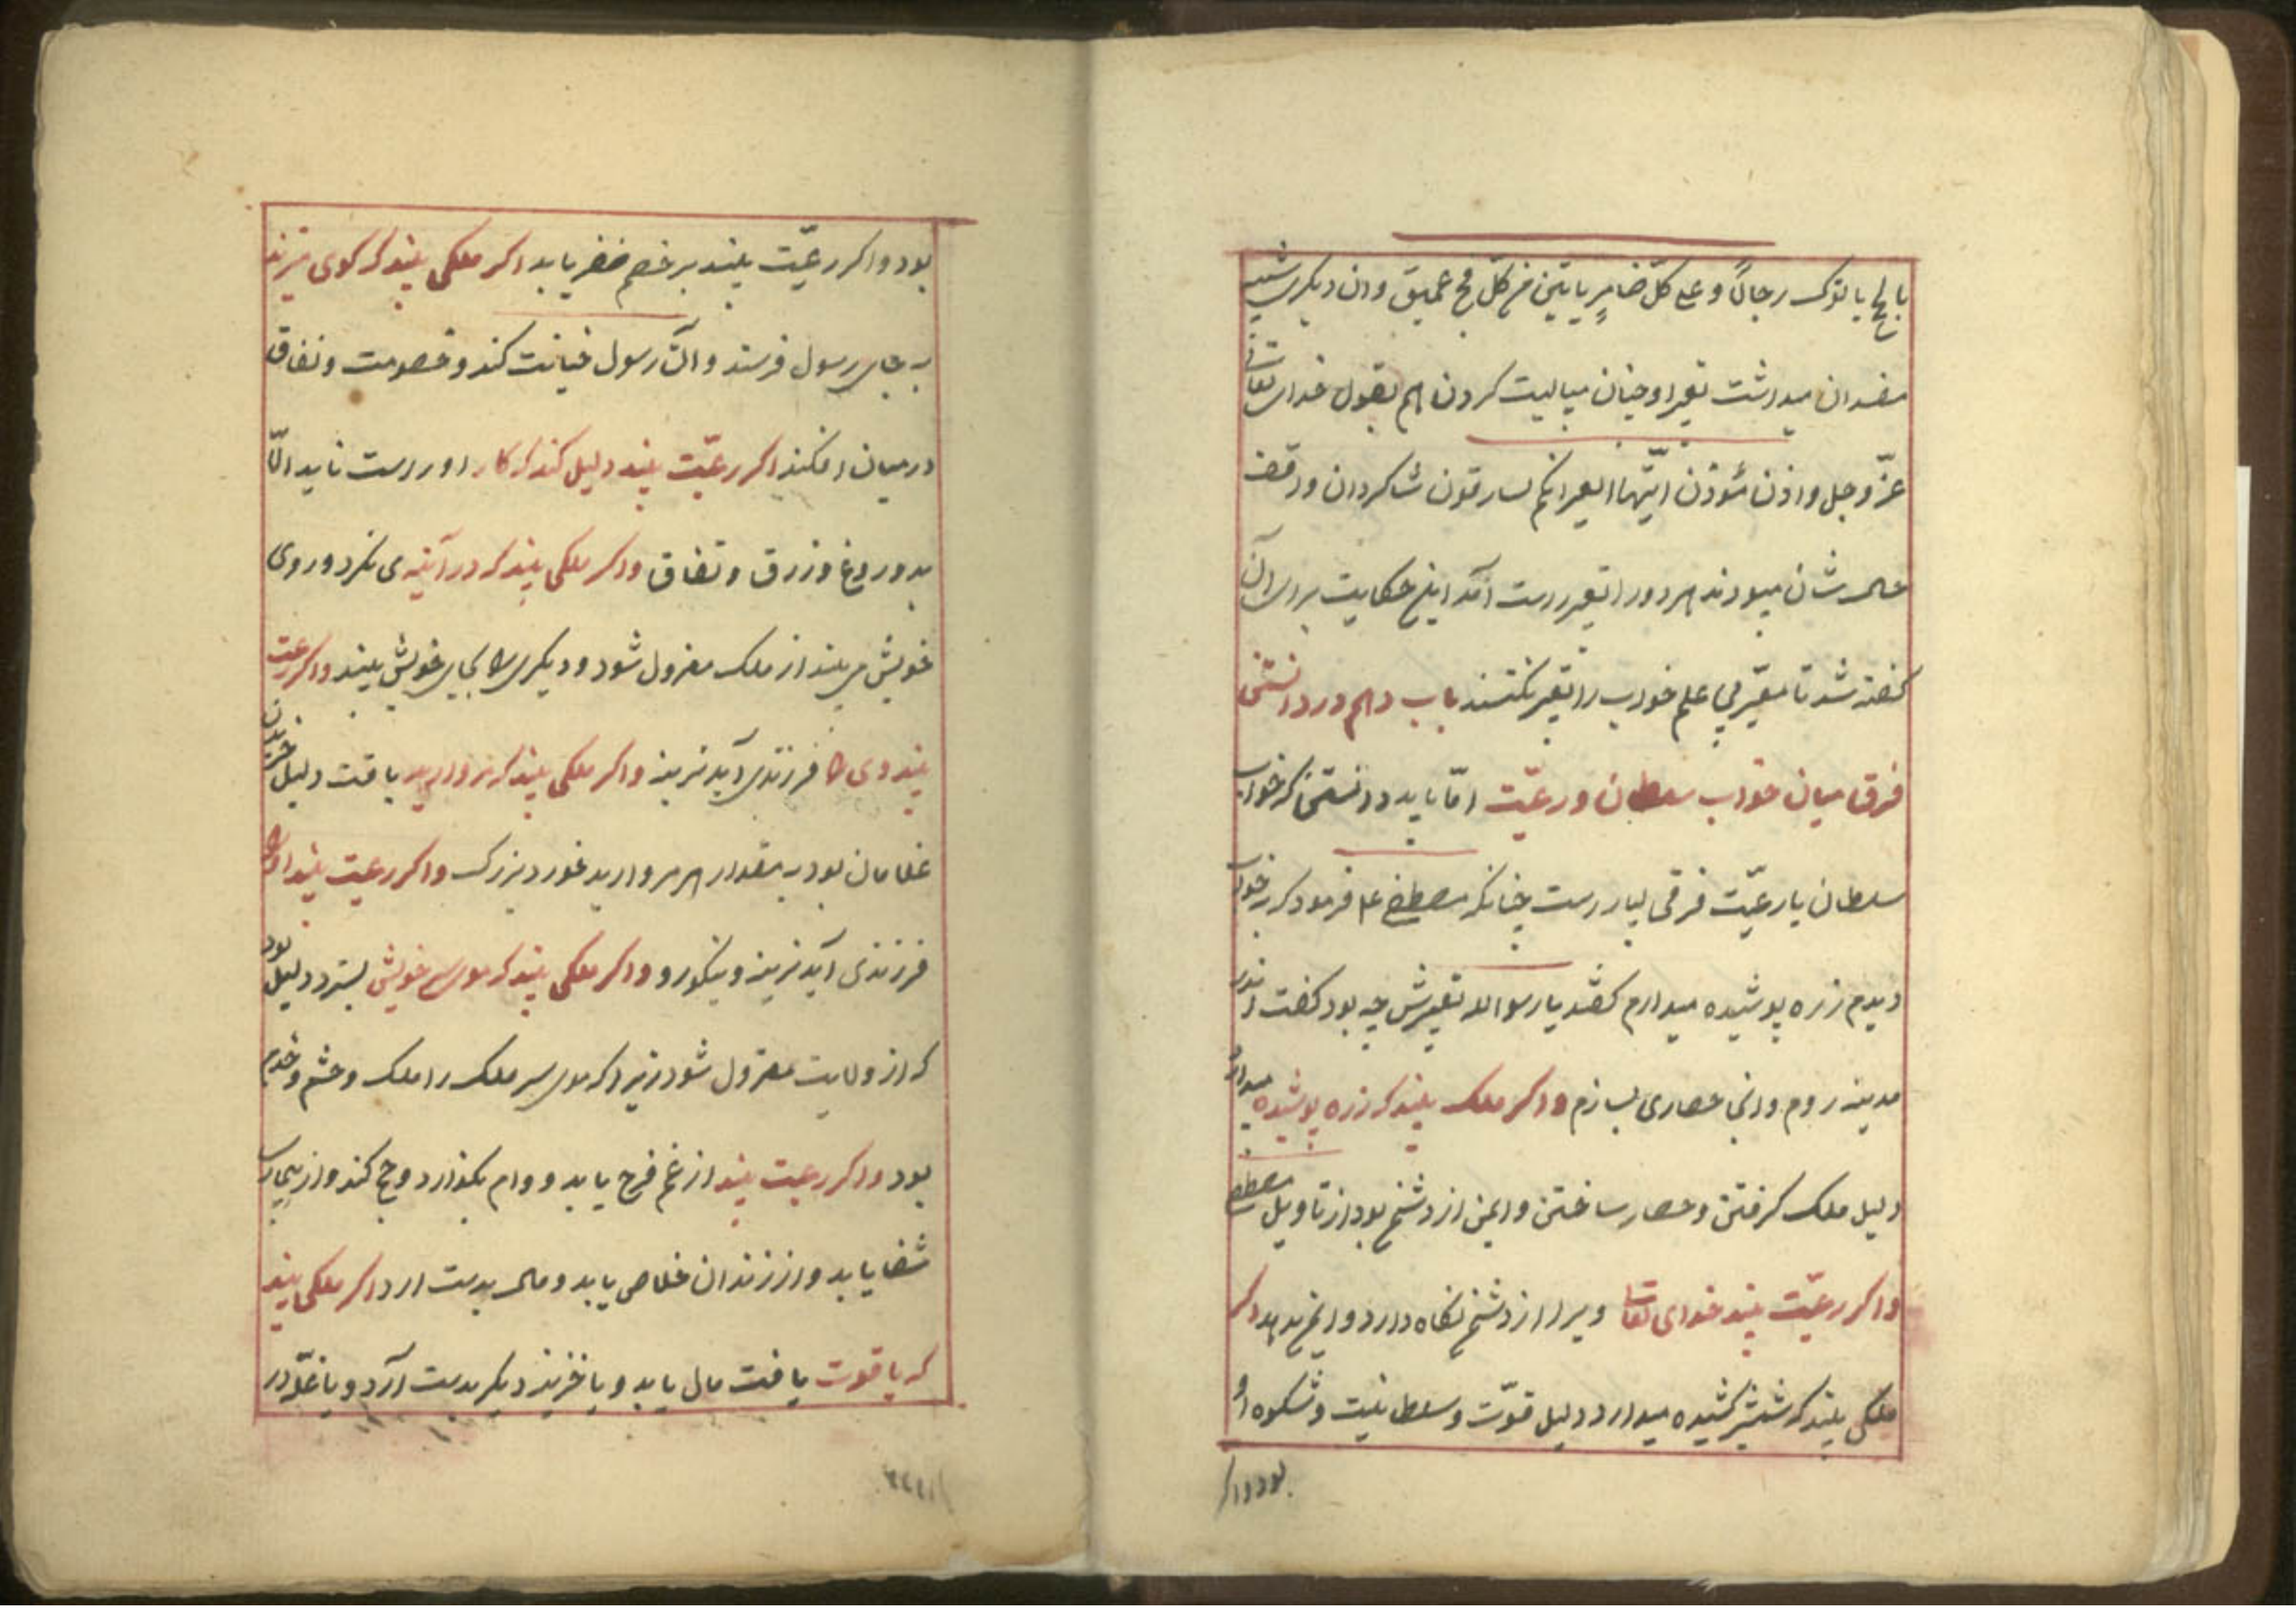 بالحج یاتوک رجالاً و علی کلّ ضامرٍ یاتین من کلّ فج عمیق وان دیکری شبیه
مفسدان میداشت تعبیر او چنان میبایست کردن هم بقول خدای تعالی
عزّ و جل واذن مؤذن ایّتها العیر انکم لسارقون شاکردان ورقف
حال شان میبودند هر دو را تعبیر راست آمد این حکایت برای آن
کفته شد تا معبّر بی علم خواب را تعبیر نکند باب دهم در دانستن
فرق میان خواب سلطان و رعیّت امّا باید دانستن که خواب
سلطان یا رعیّت فرقی بسیارست چنانکه مصطفی عم فرمود که بخواب
دیدم زره پوشیده میدارم کفتند یا رسول الله تعبیرش چه بود کفت اندر
مدینه روم وانجا حصاری بسازم و اکر ملک بیند که زره پوشیده میدارد
دلیل ملک کرفتن و حصار ساختن و ایمن از دشمن بود از تاویل مصطفی
و اکر رعیّت بیند خدای تعالی ویرا از دشمن نکاه دارد و ایمن بدهد اکر
ملکی بیند که شمشیر کشیده میدارد دلیل قوّت و سلطانیت و شکوه او
بود و اکر
بود و اکر رعیّت بیند بر خصم ظفر یابد اکر ملکی بیند که کوی میزند
به جای رسول فرستد و آن رسول خیانت کند و خصومت و نفاق
درمیان افکند اکر رعیّت بیند دلیل کند که کار او راست ناید الّا
بدوروغ و زرق و نفاق و اکر ملکی بیند که در آینه می نکرد و روی
خویش می بیند از ملک معزول شود و دیکری را بجای خویش بیند و اکر رعیت
بیند وی را فرزندی آید نرینه و اکر ملکی بیند که مروارید یافت دلیل خریدن
غلامان بود به مقدار هر مروارید خورد و بزرک و اکر رعیت بیند او را
فرزندی آید نرینه و نیکورو و اکر ملکی بیند که موی سر خویش بسترد دلیل بود
که از ولایت معزول شود زیرا که موی سر ملک را ملک و حشم و خدم
بود و اکر رعیت بیند از غم فرج یابد و وام بکذارد و حج کند و از بیماری
شفا یابد و از زندان خلاصی یابد و مال بدست ارد اکر ملکی بیند
که یاقوت یافت مال یابد و یا خزینه دیکر بدست آرد و یا غلّه در